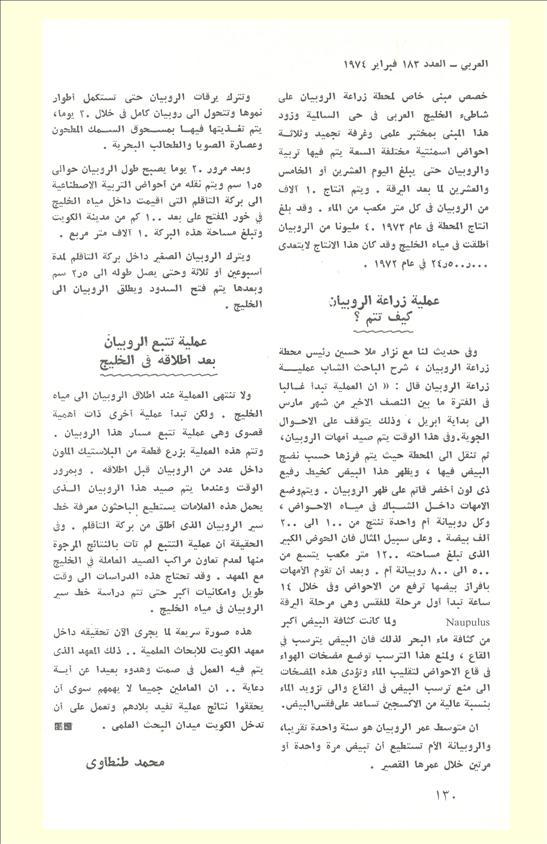 العربي – العدد ١٨٣ فبراير ١٩٧٤
خصص مبنى خاص لمحطة زراعة الروبيان على
شاطىء الخليج العربى فى حى السالمية وزود
هذا المبنى بمختبر علمى وغرفة تجميد وثلاثة
احواض اسمنتية مختلفة السعة يتم فيها تربية
والروبيان حتى يبلغ اليوم العشرين أو الخامس
والعشرين لما بعد اليرقة . ويتم انتاج ١٠ آلاف
من الروبيان فى كل متر مكعب من الماء . وقد بلغ
انتاج المحطة فى عام ١٩٧٣ ٤٠ مليونا من الروبيان
أطلقت فى مياه الخليج وقد كان هذا الانتاج لايتعدى
فى عام ١٩٧٢ .
عملية زراعة الروبيان
كيف تتم ؟
وفى حديث لنا مع نزار ملا حسين رئيس محطة
زراعة الروبيان ، شرح الباحث الشاب عملية
زراعة الروبيان قال : « ان العملية تبدأ غالبا
فى الفترة ما بين النصف الاخير من شهر مارس
الى بداية ابريل ، وذلك يتوقف على الاحوال
الجوية.وفى هذا الوقت يتم صيد أمهات الروبيان،
ثم تنقل الى المحطة حيث يتم فرزها حسب نضج
البيض فيها ، ويظهر هذا البيض كخيط رفيع
ذى لون أخضر قاتم على ظهر الروبيان . ويتم وضع
الامهات داخل الشباك فى مياه الاحواض ،
وكل روبيانة أم واحدة تنتج من ١٠٠ الى ٢٠٠
ألف بيضة . وعلى سبيل المثال فان الحوض الكبير
الذى تبلغ مساحته ١٢٠٠ متر مكعب يتسع من
٥٠٠ الى ٨٠٠ روبيانة أم . وبعد أن تقوم الأمهات
بافراز بيضها ترفع من الاحواض وفى خلال ١٤
ساعة تبدأ أول مرحلة للفقس وهى مرحلة اليرقة
Naupulus ولما كانت كثافة البيض أكبر
من كثافة ماء البحر لذلك فان البيض يترسب فى
القاع ، ولمنع هذا الترسب توضع مضخات الهواء
فى قاع الاحواض لتقليب الماء وتؤدى هذه المضخات
الى منع ترسب البيض فى القاع والى تزويد الماء
بنسبة عالية من الاكسجين تساعد على فقس البيض.
ان متوسط عمر الروبيان هو سنة واحدة تقريبا،
والروبيانة الأم تستطيع أن تبيض مرة واحدة أو
مرتين خلال عمرها القصير .
وتترك يرقات الروبيان حتى تستكمل أطوار
نموها وتتحول الى روبيان كامل فى خلال ٢٠ يوما،
يتم تغذيتها فيها بمسحوق السمك المطحون
وعصارة الصويا والطحالب البحرية .
وبعد مرور ٢٠ يوما يصبح طول الروبيان حوالى
١٫٥ سم ويتم نقله من أحواض التربية الاصطناعية
الى بركة التأقلم التى أقيمت داخل مياه الخليج
فى خور المفتح على بعد ١٠٠ كم من مدينة الكويت
وتبلغ مساحة هذه البركة ١٠ آلاف متر مربع .
ويترك الروبيان الصغير داخل بركة التأقلم لمدة
أسبوعين أو ثلاثة وحتى يصل طوله الى ٢٫٥ سم
وبعدها يتم فتح السدود ويطلق الروبيان الى
الخليج .
عملية تتبع الروبيان
بعد اطلاقه فى الخليج
ولا تنتهى العملية عند اطلاق الروبيان الى مياه
الخليج . ولكن تبدأ عملية أخرى ذات أهمية
قصوى وهى عملية تتبع مسار هذا الروبيان .
وتتم هذه العملية بزرع قطعة من البلاستيك الملون
داخل عدد من الروبيان قبل اطلاقه . وبمرور
الوقت وعندما يتم صيد هذا الروبيان الذى
يحمل هذه العلامات يستطيع الباحثون معرفة خط
سير الروبيان الذى أطلق من بركة التأقلم . وفى
الحقيقة أن عملية التتبع لم تأت بالنتائج المرجوة
منها لعدم تعاون مراكب الصيد العاملة فى الخليج
مع المعهد . وقد تحتاج هذه الدراسات الى وقت
طويل وامكانيات أكبر حتى تتم دراسة خط سير
الروبيان فى مياه الخليج .
هذه صورة سريعة لما يجرى الآن تحقيقه داخل
معهد الكويت للابحاث العلمية .. ذلك المعهد الذى
يتم فيه العمل فى صمت وهدوء بعيدا عن أية
دعاية .. ان العاملين جميعا لا يهمهم سوى أن
يحققوا نتائج عملية تفيد بلادهم وتعمل على أن
تدخل الكويت ميدان البحث العلمى .
محمد طنطاوى
١٣٠